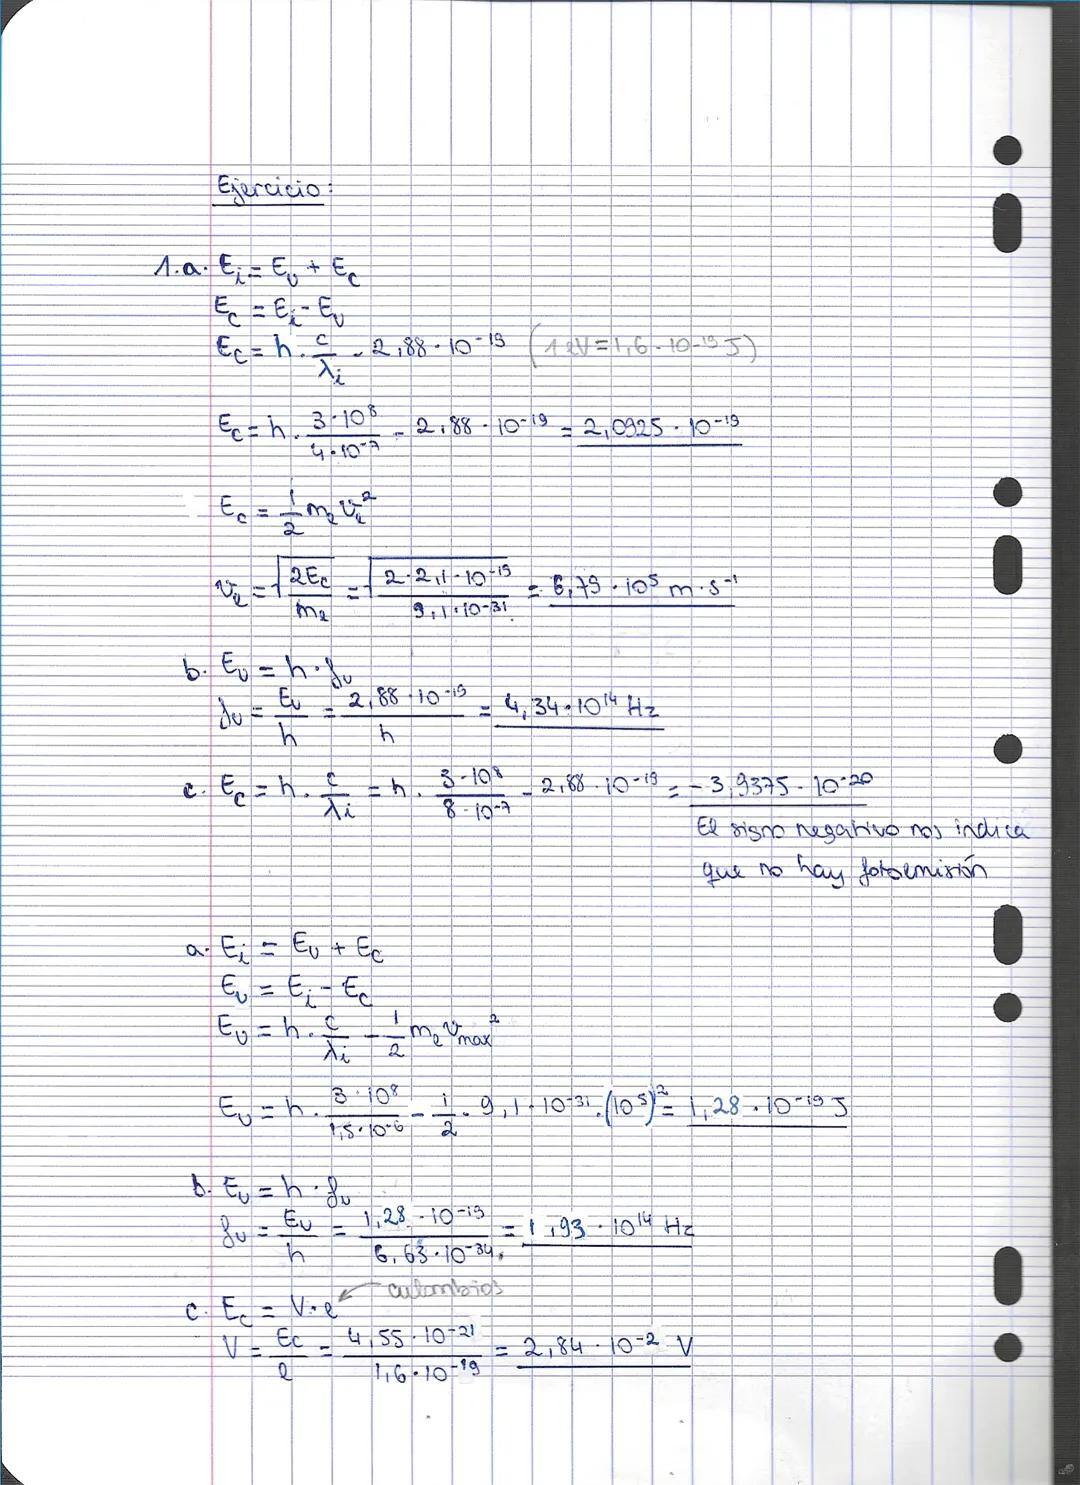 Ejercicio:
1.a. E_i = E_u + E_c
E_c = E_i - E_u
E_c = h · c/λ_i - 2,88 · 10^-19 (1 eV = 1,6 · 10^-19 J)
E_c = h · (3·10^8)/(4·10^-7) - 2,88 · 10^-19 = 2,0925 · 10^-19
E_c = 1/2 m_e v_e^2
v_e = √(2E_c/m_e) = √((2·2,1·10^-19)/(9,1·10^-31)) = 6,79 · 10^5 m·s^-1
b. E_u = h · f_u
f_u = E_u/h = (2,88 · 10^-19)/h = 4,34 · 10^14 Hz
c. E_c = h · c/λ_i = h · (3·10^8)/(8·10^-7) - 2,88 · 10^-19 = - 3,9375 · 10^-20
El signo negativo nos indica
que no hay fotoemisión
a. E_i = E_u + E_c
E_u = E_i - E_c
E_u = h · c/λ_i - 1/2 m_e v_max^2
E_u = h · (3·10^8)/(1,5·10^-6) - 1/2 · 9,1 · 10^-31 · (10^5)^2 = 1,28 · 10^-19 J
b. E_u = h · f_u
f_u = E_u/h = (1,28 · 10^-19)/(6,63·10^-34) = 1,93 · 10^14 Hz
c. E_c = V·e culombios
V = E_c/e = (4,55 · 10^-21)/(1,6·10^-19) = 2,84 · 10^-2 V